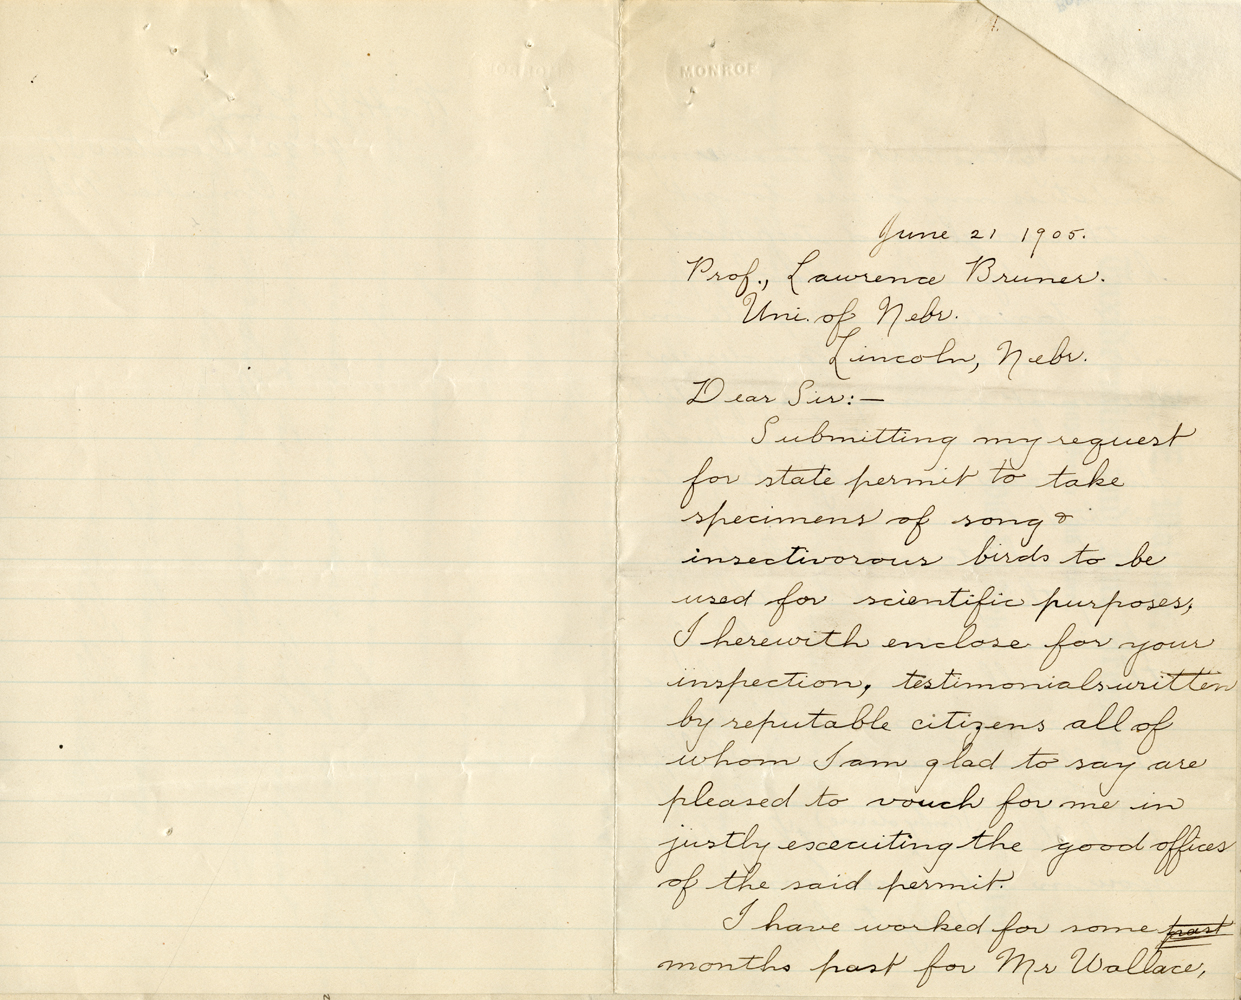 MONROE
June 21 1905.
Prof., Lawrence Bruner.
Uni. of Nebr.
Lincoln, Nebr.
Dear Sir:—
Submitting my request
for state permit to take
specimens of song &
insectivorous birds to be
used for scientific purposes,
I herewith enclose for your
inspection, testimonials written
by reputable citizens all of
whom I am glad to say are
pleased to vouch for me in
justly executing the good offices
of the said permit.
I have worked for some past
months past for Mr Wallace,